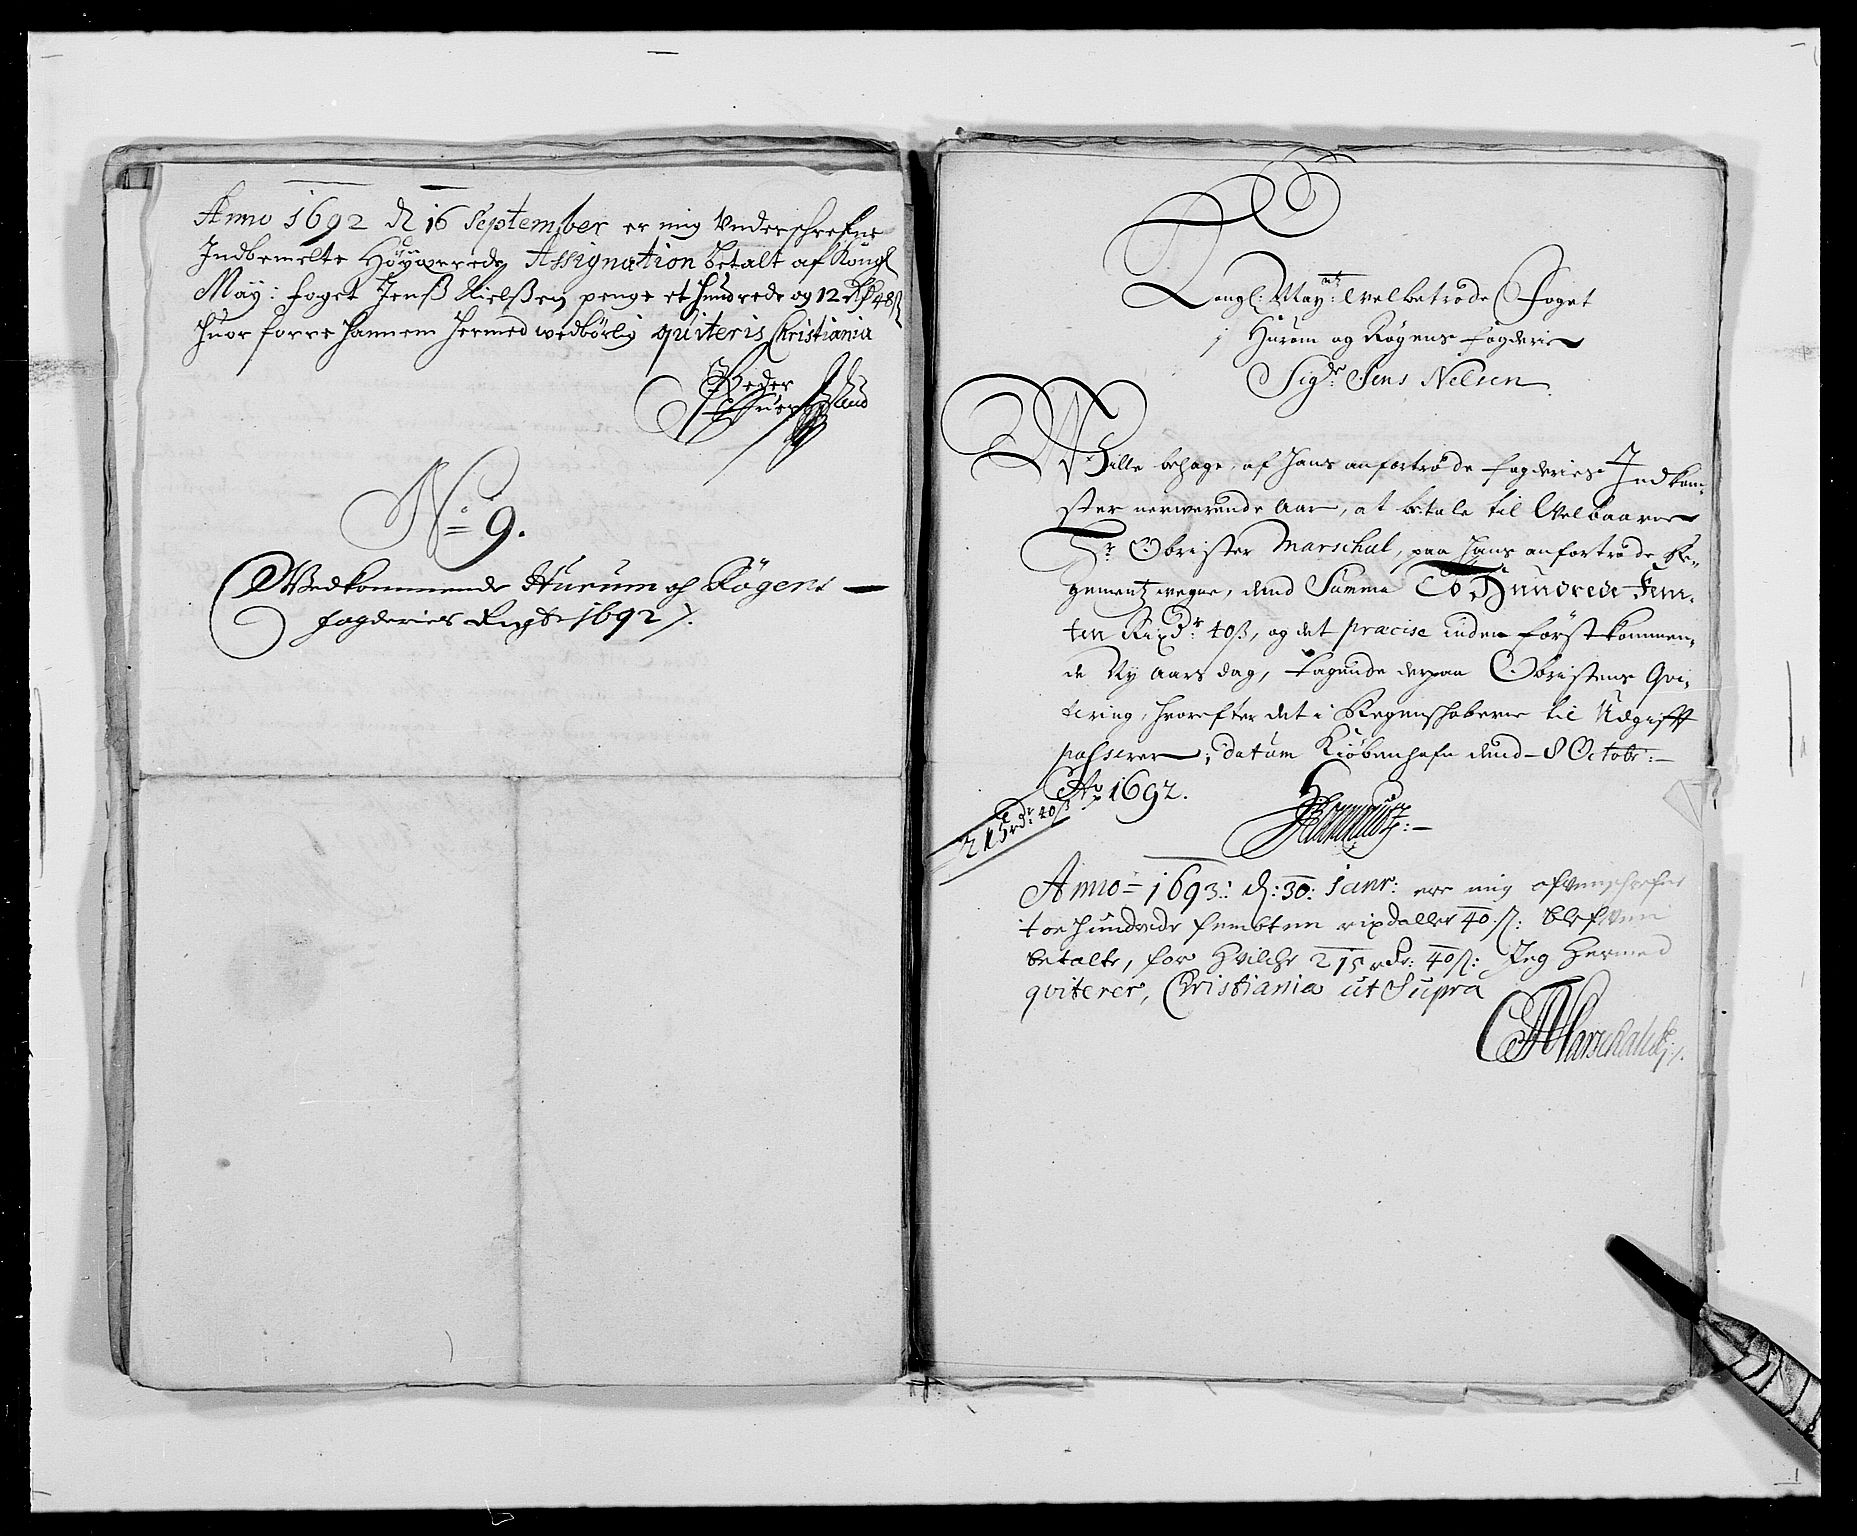 Anno 1692 d 16 September er mig Underschrefne
Indbemelte Høyærede Assignation betalt af Kongl
May: foget Jenß Nielßen, penge et hundrede og 12 Rd 48 ß
huor forre hannem hermed wedbørlig quiteris Christiania
Peder
No 9.
Wedkommende Hurum og Røgens
fogderies Regsk 1692
Kongl: Mayttz: Welbetrode Foget
i Hurom og Røgens fogderie
Sigr Jens Nelsen
Wille behage, af hans anfortrode fogderies Indkom-
ster nerwerende Aar, at betale til Welbaarne
Hr Obrister Marschal, paa hans anfortrode Re-
gementz wegne, dend Summa To Hundrede Fem-
ten Rixdr 40 ß, og det præcise inden først kommen-
de Ny Aars dag, tagende derpaa Obristens Qvi-
tering, hvorefter det i Regenschaberne til Udgifft
passerer, datum Kiøbenhafn dend 8 Octobr:
Ao 1692.
215 rdr 40 ß
Anno 1693: d: 30: Janr: ere mig ofvenschrefne
toe hundrede fembten rixdaller 40 ß: blefven
betalte, for hvilche 215 rdr: 40 ß: Jeg hermed
qviterer, Christiania ut Supra
Marschalck